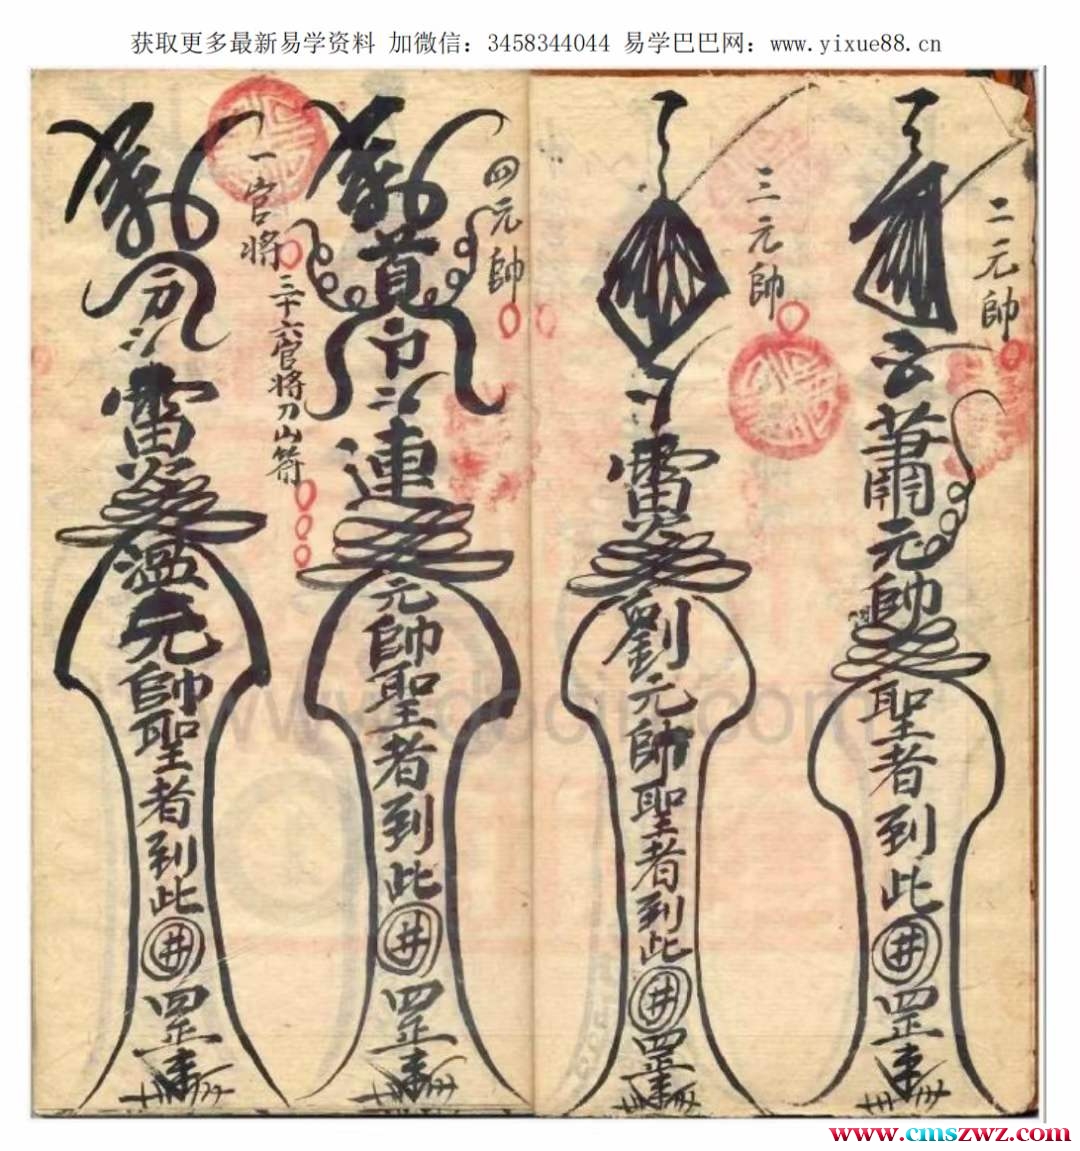 获取更多最新易学资料 加微信：3458344044 易学巴巴网：www.yixue88.cn
二元帥
云蕭元帥聖者到此井罡
三元帥
雷劉元帥聖者到此井罡
四元帥
連元帥聖者到此井罡
一官將
三十六官將刀山符
雷溫元帥聖者到此井罡
www.docin.com
www.cmszwz.com